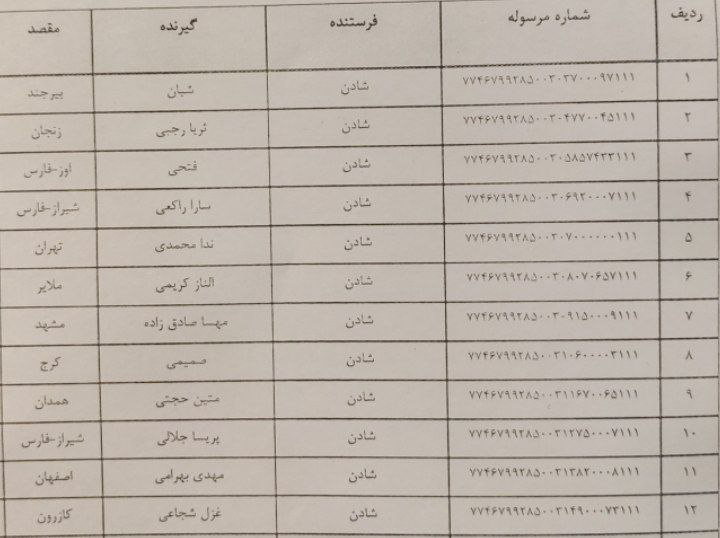 ردیف شماره مرسوله فرستنده گیرنده مقصد
۱ ۷۷۴۶۷۹۹۲۸۵۰۰۳۰۳۷۰۰۰۹۷۱۱۱ شادن شبان بیرجند
۲ ۷۷۴۶۷۹۹۲۸۵۰۰۳۰۴۷۷۰۰۴۵۱۱۱ شادن ثریا رجبی زنجان
۳ ۷۷۴۶۷۹۹۲۸۵۰۰۳۰۵۸۵۷۴۳۳۱۱۱ شادن فتحی اوز-فارس
۴ ۷۷۴۶۷۹۹۲۸۵۰۰۳۰۶۹۲۰۰۰۷۱۱۱ شادن سارا راکعی شیراز-فارس
۵ ۷۷۴۶۷۹۹۲۸۵۰۰۳۰۷۰۰۰۰۰۰۰۱۱۱ شادن ندا محمدی تهران
۶ ۷۷۴۶۷۹۹۲۸۵۰۰۳۰۸۰۷۰۶۵۷۱۱۱ شادن الناز کریمی ملایر
۷ ۷۷۴۶۷۹۹۲۸۵۰۰۳۰۹۱۵۰۰۰۹۱۱۱ شادن مهسا صادق زاده مشهد
۸ ۷۷۴۶۷۹۹۲۸۵۰۰۳۱۰۶۰۰۰۰۳۱۱۱ شادن صمیمی کرج
۹ ۷۷۴۶۷۹۹۲۸۵۰۰۳۱۱۶۷۰۰۶۵۱۱۱ شادن متین حجتی همدان
۱۰ ۷۷۴۶۷۹۹۲۸۵۰۰۳۱۲۷۵۰۰۰۷۱۱۱ شادن پریسا جلالی شیراز-فارس
۱۱ ۷۷۴۶۷۹۹۲۸۵۰۰۳۱۳۸۲۰۰۰۸۱۱۱ شادن مهدی بهرامی اصفهان
۱۲ ۷۷۴۶۷۹۹۲۸۵۰۰۳۱۴۹۰۰۰۷۳۱۱۱ شادن غزل شجاعی کازرون